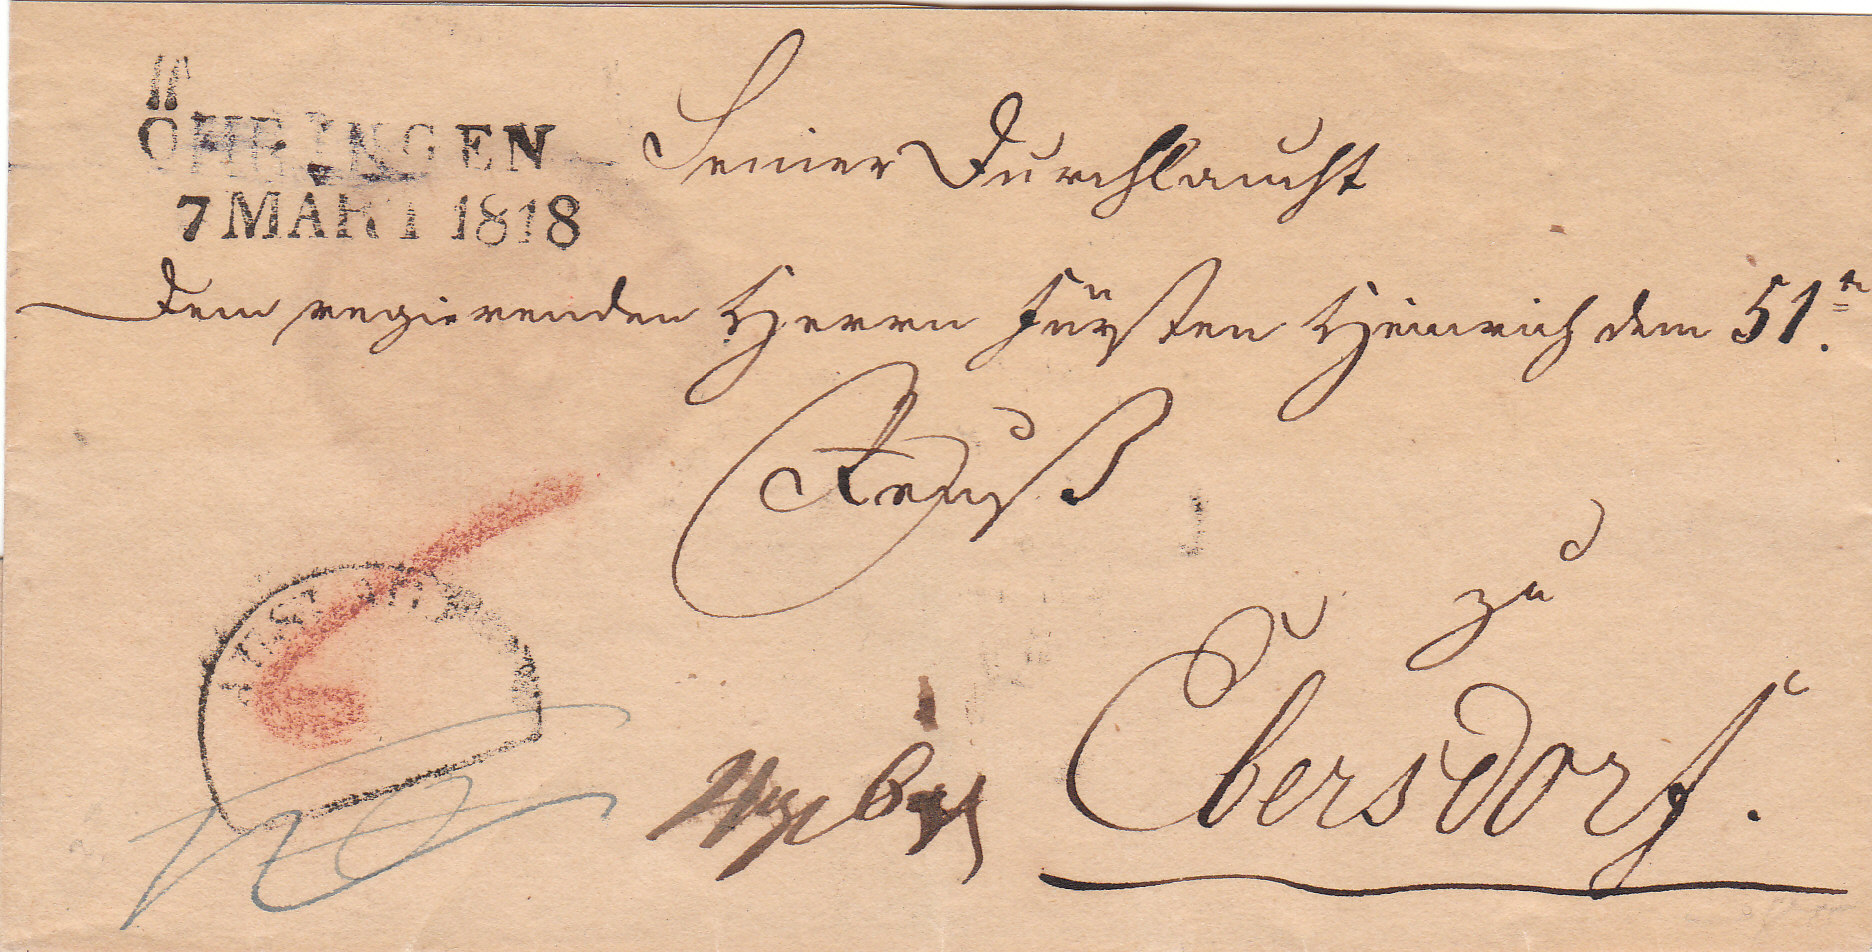 ÖHRINGEN
7 MÄRT 1818
Seiner Durchlaucht
Dem regierenden Herrn Fürsten Heinrich dem 51.n
Reuß
zu
Ebersdorf.